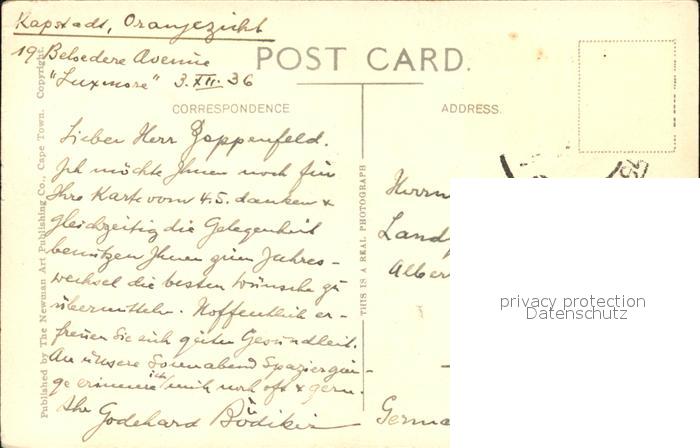 Kapstadt, Oranjezicht
19 Belvedere Avenue
"Luxmore" 3.XII.36
POST CARD.
CORRESPONDENCE
ADDRESS.
Lieber Herr Poppenfeld.
Ich möchte Ihnen noch für
Ihre Karte vom 4.5. danken &
gleichzeitig die Gelegenheit
benützen Ihnen zum Jahres-
wechsel die besten Wünsche zu
übermitteln. Hoffentlich er-
freuen Sie sich guter Gesundheit.
An unsere Sonnabend Spaziergän-
ge erinnere ich mich noch oft & gern.
Ihr Godehard Bödiker
Published by The Newman Art Publishing Co., Cape Town. Copyright.
THIS IS A REAL PHOTOGRAPH
Herrn
Land
Alber
Germa
privacy protection
Datenschutz